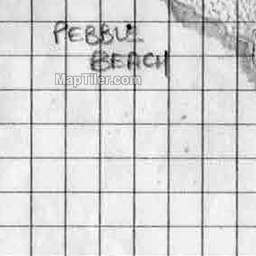 PEBBLE
BEACH
MapTiler.com